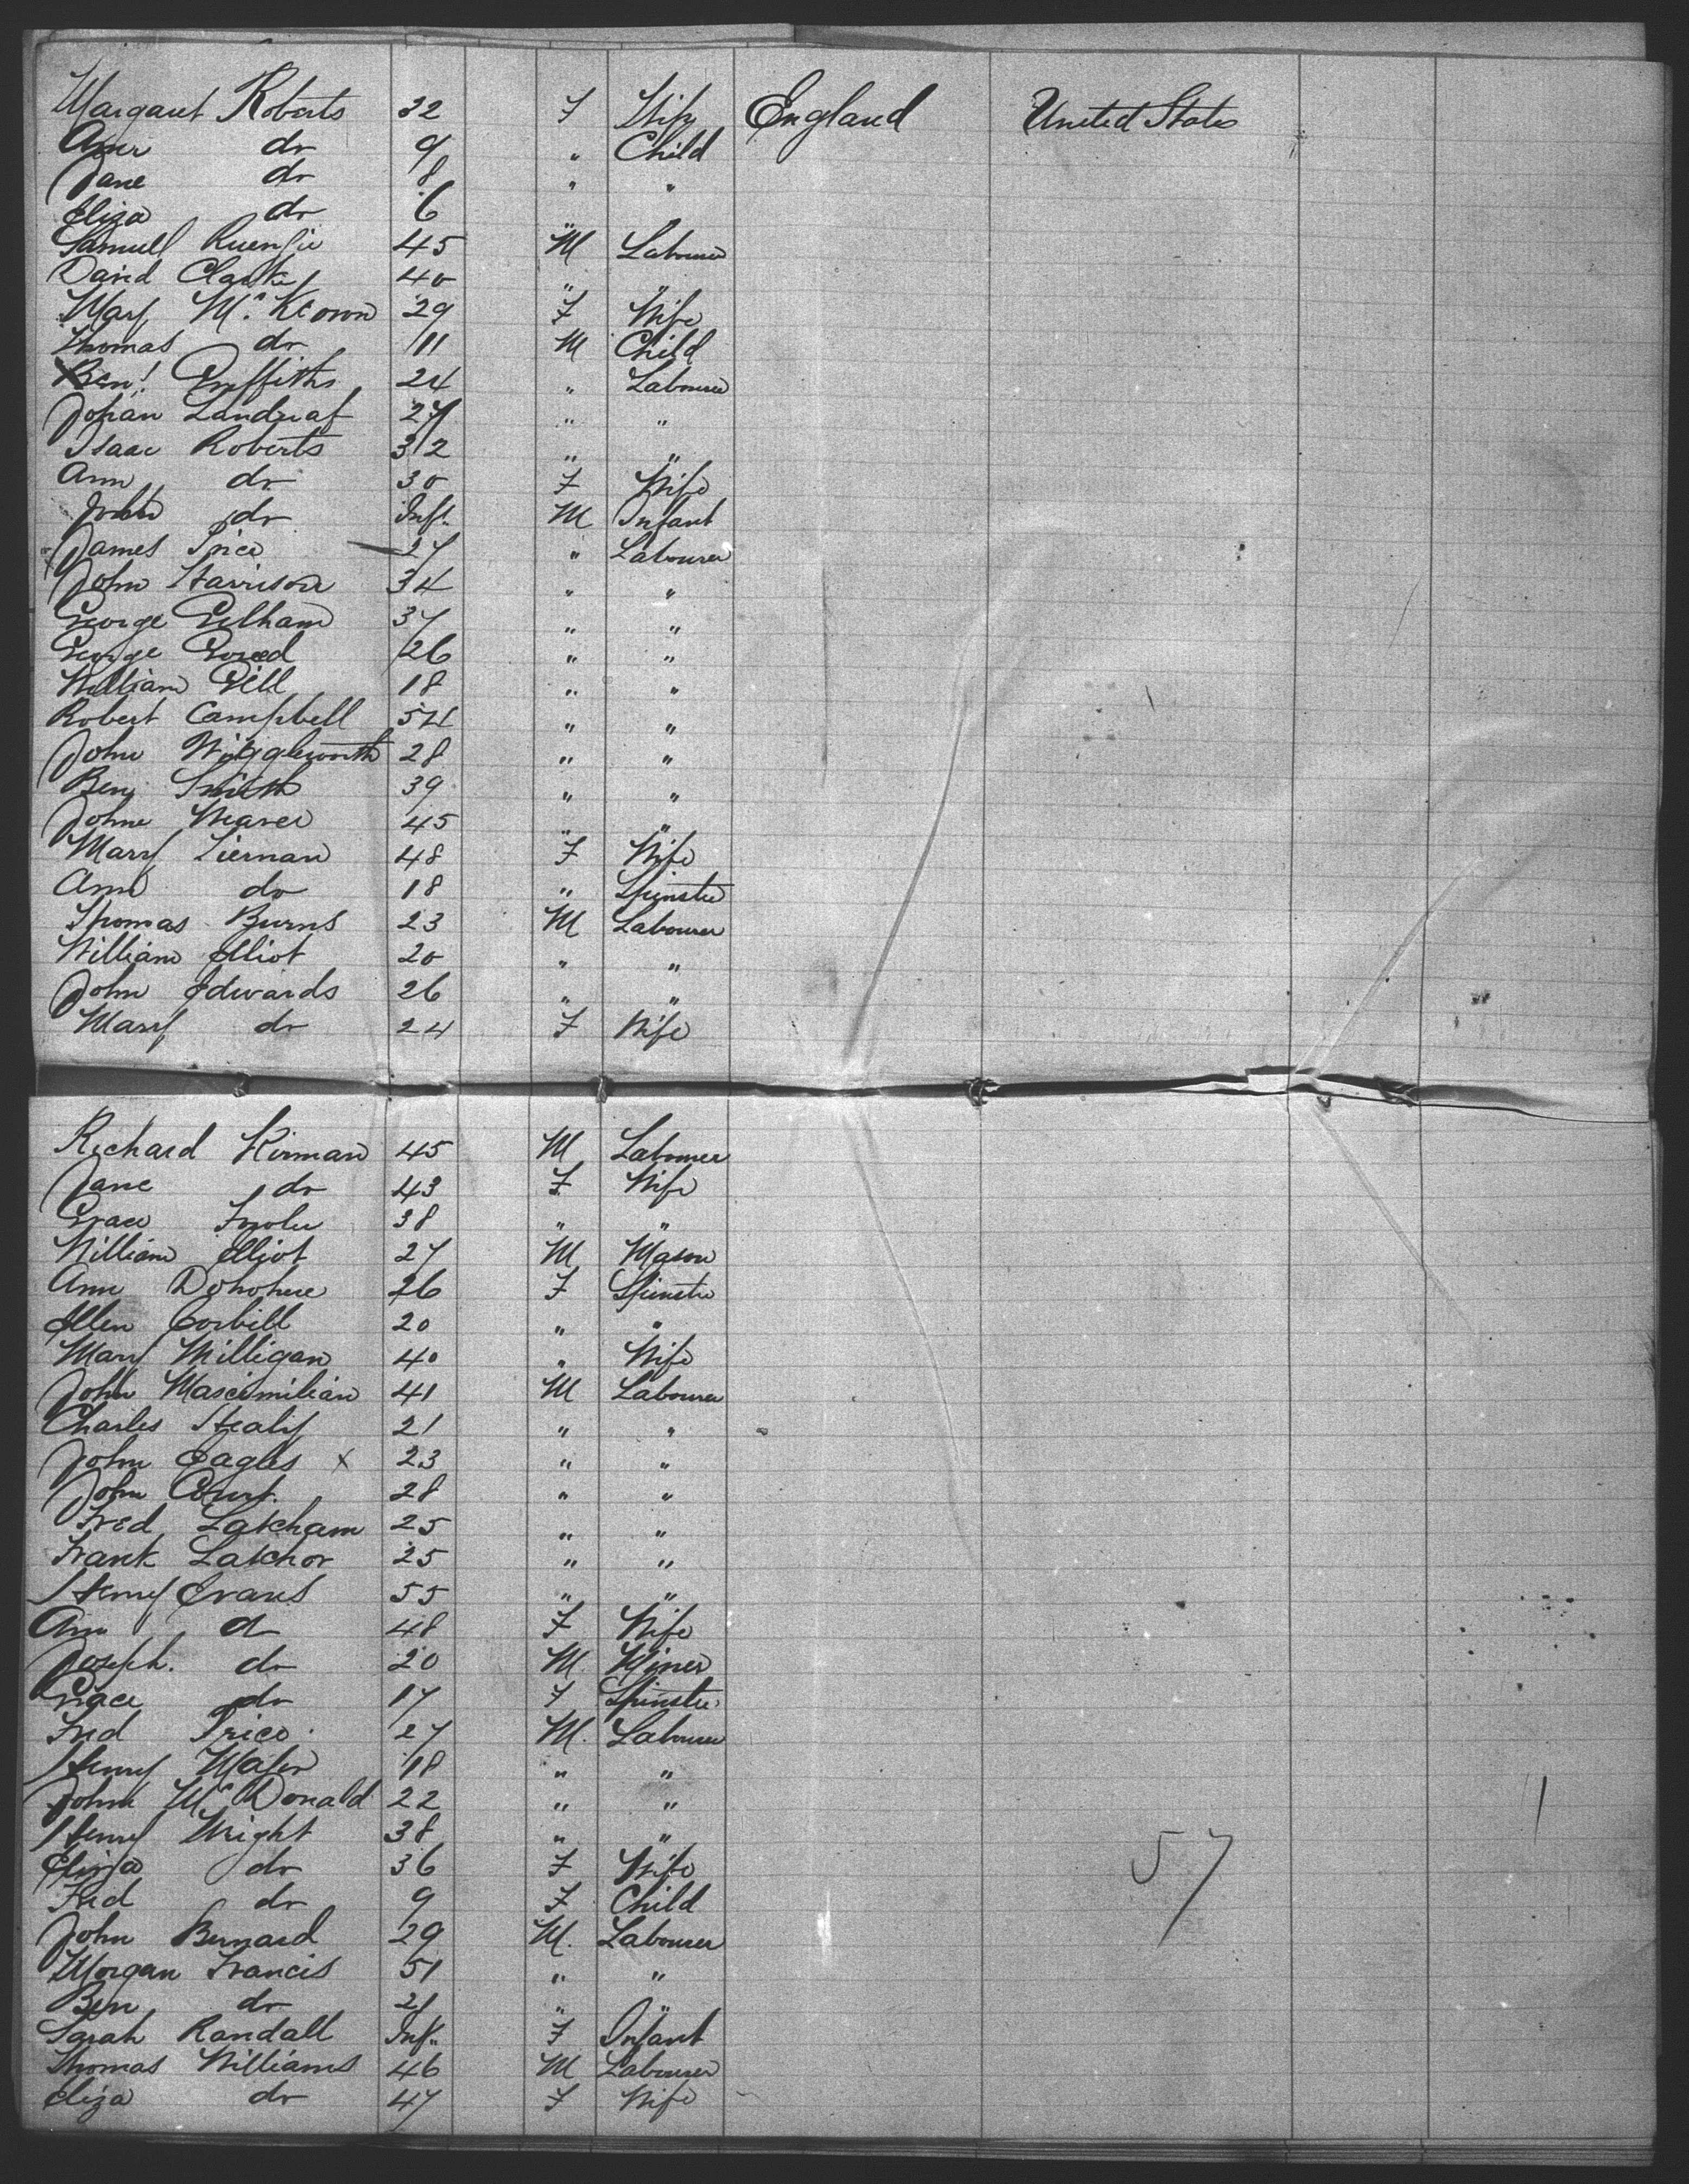 Margaret Roberts 32 F Wife England United States
Ann do 9 " Child
Jane do 8 " "
Eliza do 6 "
Samuel 45 M Labourer
David Clarke 40 " "
Mary McKeown 29 F Wife
Thomas do 11 M Child
Benj Griffiths 24 " Labourer
Johan Landgraf 27 " "
Isaac Roberts 32 " "
Ann do 30 F Wife
John do Inft. M Infant
James Price 27 " Labourer
John Harrison 34 " "
George Gelham 37 " "
George Goreed 26 " "
William Gill 18 " "
Robert Campbell 54 " "
John Wigglesworth 28 " "
Benj Smith 39 " "
John Weaver 45 " "
Mary Tiernan 48 F Wife
Ann do 18 " Spinster
Thomas Burns 23 M Labourer
William Elliot 20 " "
John Edwards 26 " "
Mary do 24 F Wife
Richard Kirman 45 M Labourer
Jane do 43 F Wife
Grace 38 " "
William Elliot 27 M Mason
Ann Donohue 26 F Spinster
Ellen Corbill 20 " "
Mary Milligan 40 " Wife
John Mascimilian 41 M Labourer
Charles Healy 21 " "
John Eagles x 23 " "
John Court. 28 " "
Fred Latcham 25 " "
Frank Latchor 25 " "
Henry Evans 55 " "
Ann d 48 F Wife
Joseph. do 20 M Miner
Grace do 17 F Spinster
Fred Price 27 M. Labourer
Henry Major 18 " "
John McDonald 22 " "
Henry Wright 38 " "
Eliza do 36 F Wife 57
Fred do 9 F Child
John Bernard 29 M. Labourer
Morgan Francis 51 " "
Ben do 21 " "
Sarah Randall Inft. F Infant
Thomas Williams 46 M Labourer
Eliza do 47 F Wife